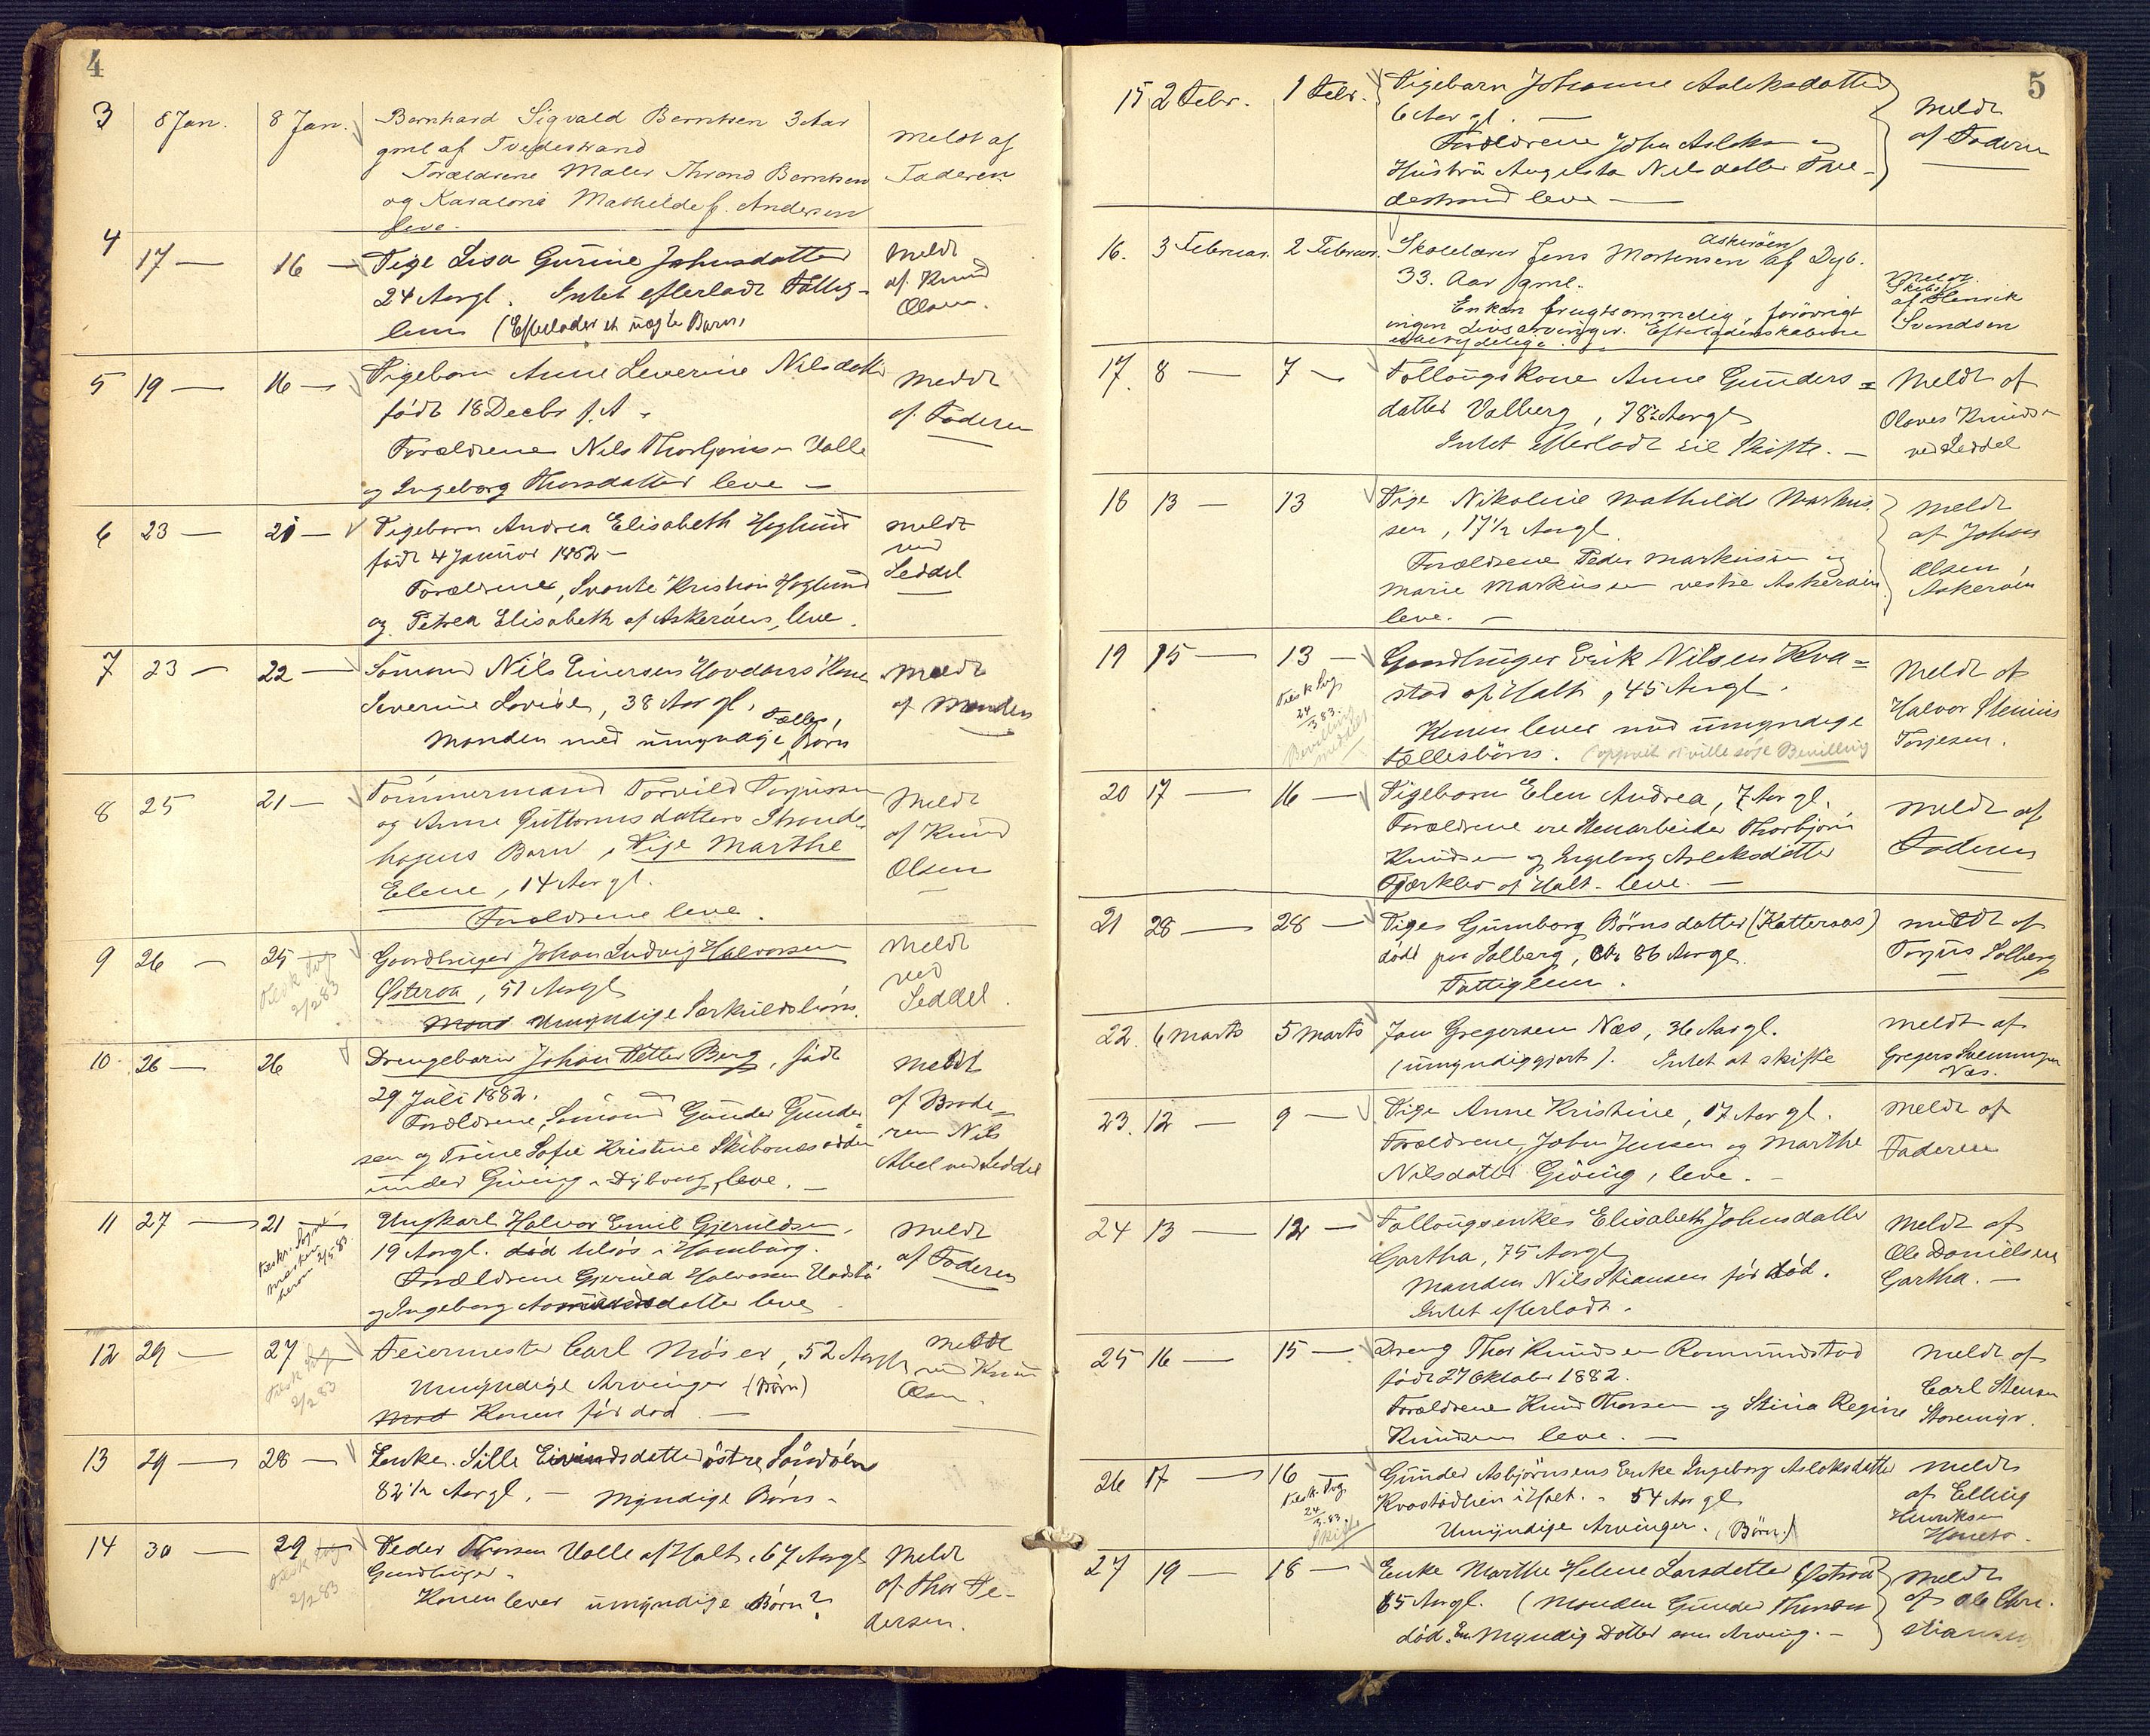 4
3 8 Jan. 8 Jan. Bernhard Sigvald Berntsen 3 Aar
gml af Tvedestrand
Forældrene Maler Thrond Berntsen
og Mathilde f. Andersen
leve.
Meldt af
Faderen
4 17 — 16 — Pige Lisa Gurine Johnsdatter
24 Aar gl. Intet efterladt Fattig-
lem (Efterlader et uægte Barn)
Meldt
af Knud
Olsen.
5 19 — 16 — Pigebarn Anne Severine Nilsdatter
født 18 Decbr f. A.
Forældrene Nils Thorbjørnsen Valle
og Ingeborg Thorsdatter leve —
Meldt
af Faderen
6 23 — 21 — Pigebarn Andrea Elisabeth Hoglund
født 4 Januar 1882 —
Forældrene, Svante Kristian Hoglund
og Petrea Elisabeth af Askerøens, leve.
Meldt
ved
Seddel
7 23 — 22 — Sømand Nils Einersen Kone
Severine Lovise, 38 Aar gl.
Manden med umyndige Fælles Børn
Meldt
af Manden
8 25 21 — Tømmermand Torvild Torjussen
og Anne Guttormsdatters Strande-
hagens Barn, Pige Marthe
Elene, 14 Aar gl.
Forældrene leve.
Meldt
af Knud
Olsen
9 26 — 25 — Gaardbruger Johan Ludvig Halvorsen
Østeraa, 51 Aar gl
Umyndige Særkuldsbørn.
2/2 83
Meldt
ved
Seddel.
10 26 — 26 Drengebarn Johan Petter Berg, født
29 Juli 1882.
Forældrene, Sømand Gunder Gunder-
sen og Trine Sofie Kristine Skibsnæsodden
under Gjeving i Dybvaag, leve. —
Meldt
af Brode-
ren Nils
Abel ved Seddel
11 27 — 21 — Ungkarl Halvor Emil Gjeruldsen,
19 Aar gl. død tilsøs i Hamburg.
Forældrene Gjeruld Halvorsen
og Ingeborg datter leve
2/5 83.
Meldt
af Faderen
12 29 — 27 — Feiermester Carl Møser, 52 Aar gl
Umyndige Arvinger (Børn)
Konen før død —
2/2 83
Meldt
ved Knud
Olsen.
13 29 — 28 — Enke Sille Eivindsdatter østre Sandøen
82 1/2 Aar gl. — Myndige Børn.
14 30 — 29 — Peder Thorsen Valle af Holt, 67 Aar gl
Gaardbruger.
Konen lever umyndige Børn?
2/2 83
Meldt
af Thor Pe-
dersen.
5
15 2 Febr. 1 Febr. Pigebarn Johanne Aslaksdatter
6 Aar gl.
Forældrene John Aslaksen og
Hustru Augusta Nilsdatter Tve-
destrand leve —
Meldt
af Faderen
16. 3 Februar. 2 Februar. Skolelærer Jens Mortensen Askerøen af Dyb.
33. Aar gml.
Enken frugtsommelig, forøvrigt
ingen Livsarvinger. Efterladenskaberne
ubetydelige.
Meldt
af Henrik
Svendsen
17. 8 — 7 — Follougskone Anne Gunders-
datter Valberg, 78 1/2 Aar gl
Intet efterladt til Skifte. —
Meldt af
Olaves Knudsen
ved Seddel
18 13 — 13 Pige Nikoline Mathilde Markus-
sen, 17 1/2 Aar gl
Forældrene Peder Markussen og
Marie Markussen vestre Askerøen
leve. —
Meldt
af Johan
Olsen
Askerøen
19 15 — 13 — Gaardbruger Erik Nilsen Kva-
stad af Holt, 45 Aar gl.
Konen lever med umyndige
Fællesbørn. (opgivet at ville søge Bevilling
24/3 83.
Bevilling
meddelt
Meldt af
Halvor Stenius
Torjesen.
20 17 — 16 — Pigebarn Elen Andrea, 7 Aar gl.
Forældrene ere Stenarbeider Thorbjørn
Knudsen og Ingeborg Aslaksdatter
Fjærkleiv af Holt. leve. —
Meldt af
Faderen
21 28 — 28 — Pige Gumborg Børnsdatter (Katteraas)
død paa Solberg, Ca 86 Aar gl.
Fattiglem.
Meldt af
Torjus Solberg
22. 6 Marts 5 Marts Jan Gregersen Næs, 36 Aar gl.
(umyndiggjort). Intet at skifte
Meldt af
Gregers Svenningsen
Næs.
23. 12 — 9 — Pige Anne Kristine, 17 Aar gl.
Forældrene, John Jensen og Marthe
Nilsdatter Gjeving, leve. —
Meldt af
Faderen
24 13 — 12 — Follougsenke Elisabeth Johnsdatter
Gartha, 75 Aar gl
Manden Nils Stiansen før død.
Intet efterladt.
Meldt af
Ole Danielsen
Gartha. —
25 16 — 15 — Dreng Thor Knudsen Rommundstad
født 27 Oktober 1882.
Forældrene Knud Thorsen og Stina Regine
Knudsen leve. —
Meldt af
Carl Stensen
Storemyr.
26 17 — 16 — Gunder Asbjørnsens Enke Ingeborg Aslaksdatter
Kvastadlien i Holt. 54 Aar gl
Umyndige Arvinger. (Børn.)
24/3 83
Skifte
Meldt
af Elling
Henriksen
27 19 — 18 — Enke Marthe Helene Larsdatter Østeraa
85 Aar gl. (Manden Gunder Thorsen
død. En Myndig Datter som Arving. —
Meldt
af Ole Chri-
stiansen